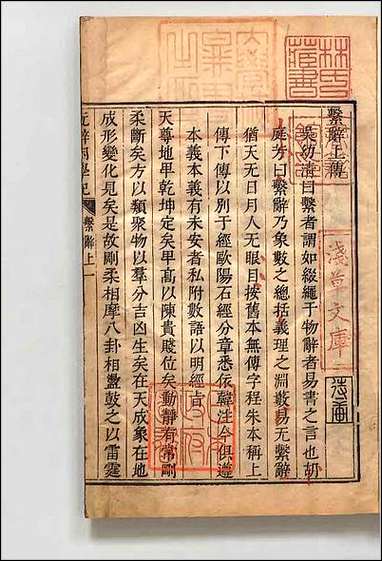 繫辭上傳
吳幼清曰繫者謂如綴繩于物辭者易書之言也胡
庭芳曰繫辭乃象數之總括義理之淵藪易无繫辭
猶天无日月人无眼目按舊本無傳字程朱本稱上
傳下傳以別于經歐陽石經分章悉依韓注今俱遵
本義本義有未安者私附數語以明經旨
天尊地卑乾坤定矣卑高以陳貴賤位矣動靜有常剛
柔斷矣方以類聚物以羣分吉凶生矣在天成象在地
成形變化見矣是故剛柔相摩八卦相盪鼓之以雷霆
繫辭上 一
淺草文庫
林氏藏書